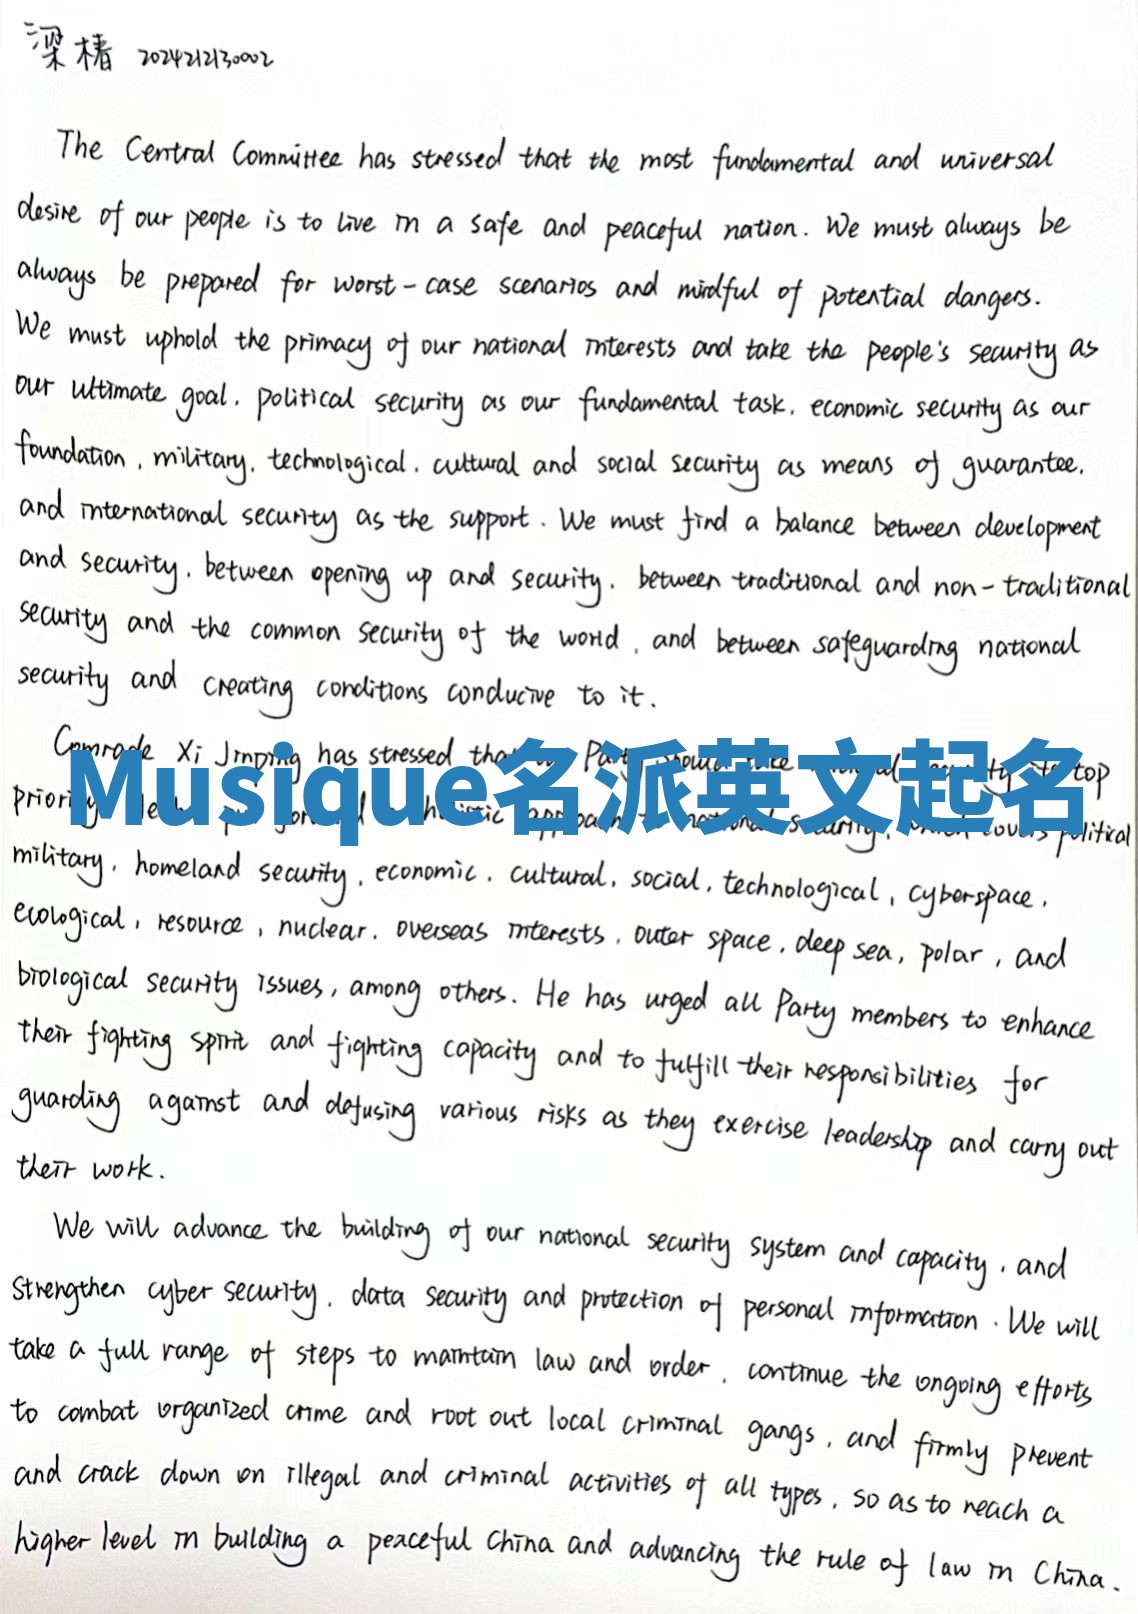 梁椿 2024212130002
The Central Committee has stressed that the most fundamental and universal
desire of our people is to live in a safe and peaceful nation. We must always be
always be prepared for worst-case scenarios and mindful of potential dangers.
We must uphold the primacy of our national interests and take the people's security as
our ultimate goal, political security as our fundamental task, economic security as our
foundation, military, technological, cultural and social security as means of guarantee,
and international security as the support. We must find a balance between development
and security, between opening up and security, between traditional and non-traditional
security and the common security of the world, and between safeguarding national
security and creating conditions conducive to it.
Comrade Xi Jinping has stressed that Party should top
Musique名派英文起名
priority approach to national security, which covers political
military, homeland security, economic, cultural, social, technological, cyberspace,
ecological, resource, nuclear, overseas interests, outer space, deep sea, polar, and
biological security issues, among others. He has urged all Party members to enhance
their fighting spirit and fighting capacity and to fulfill their responsibilities for
guarding against and defusing various risks as they exercise leadership and carry out
their work.
We will advance the building of our national security system and capacity, and
strengthen cyber security, data security and protection of personal information. We will
take a full range of steps to maintain law and order, continue the ongoing efforts
to combat organized crime and root out local criminal gangs, and firmly prevent
and crack down on illegal and criminal activities of all types, so as to reach a
higher level in building a peaceful China and advancing the rule of law in China.